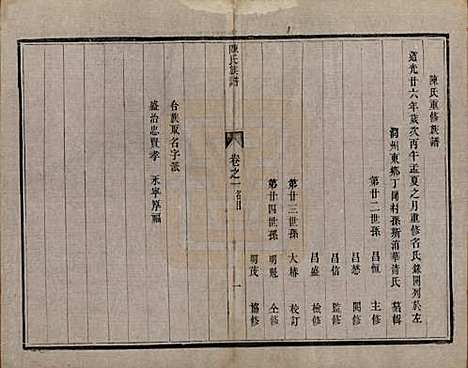 陳氏重修族譜
道光廿六年歲次丙午孟夏之月重修名氏錄開列於左
潤州東鄉丁岡村孫斯滄華清氏 纂輯
第廿二世孫 昌恒 主修
昌懋 閱修
昌信 監修
昌盛 檢修
第廿三世孫 大椿 校訂
第廿四世孫 明魁 仝修
明茂 協修
陳氏族譜 卷之一 名目 一
合族取名字派
盛治忠賢孝 永寧厚福